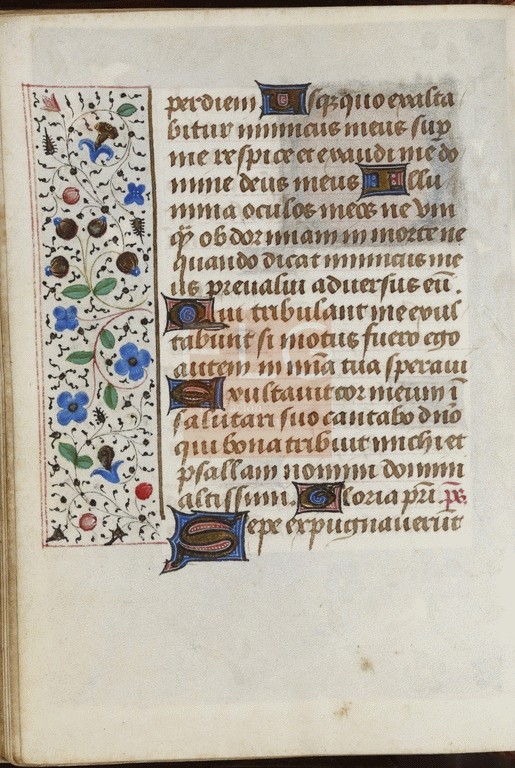 perdiem Usq3quo exalta
bitur inimicus meus sup
me respice et exaudi me do
mine deus meus Illu
mina oculos meos ne vm
q̄ obdormiam in morte ne
quando dicat inimicus me
us preualui aduersus eū .
Qui tribulant me exul
tabunt si motus fuero ego
autem in mīa tua speraui
Exultauit cor meum ī
salutari suo cantabo dnō
qui bona tribuit michi et
psallam nomini domini
altissimi. Gloria pr̄i p̄s
Sepe expugnauerūt